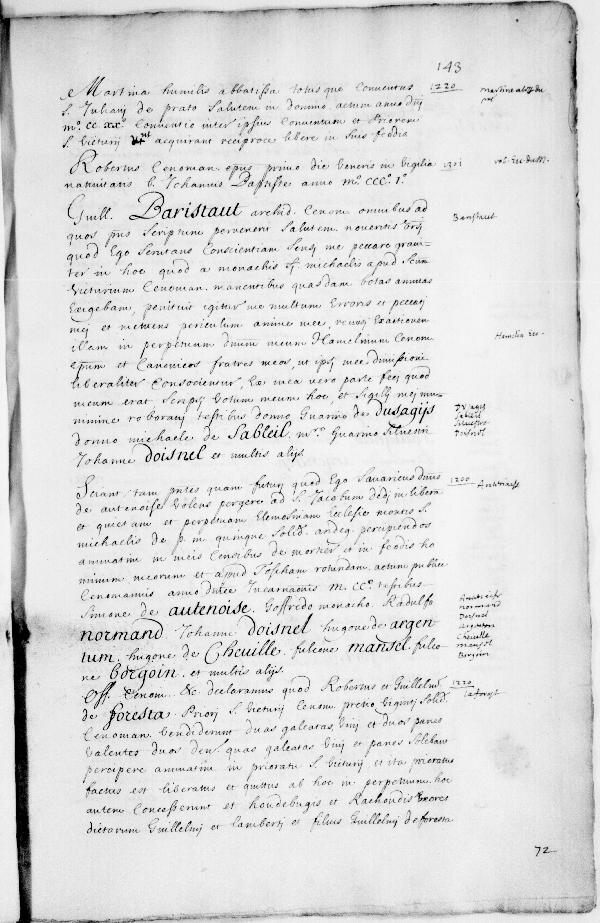 143
Martina humilis abbatissa totusque Conventus 1220 martine abb. du
S. Juliani de prato Salutem in domino. actum anno dnj pré
mº. cc. xxº. Conventio inter ipsius Conventum et Priorem
S. Victurij ut acquirant reciproce libere in suis feodis
Robertus Cenoman. epus primo die Veneris in Vigilia 1301
nativitatis b. Johannis Baptiste anno mº. cccº. Iº.
Guill. Baristaut archid. Cenom. omnibus ad Baristaut
quos pns scriptum pervenerit Salutem. noveritis
quod Ego Scrutans Conscientiam me peccare gravi-
ter in hoc quod a monachis S. michaelis apud Scum
Victurium Cenoman. manentibus quasdam botas annuas
Exigebam, penituit igitur me multum Erroris et peccatj
mej et metuens periculum anime mee, Exactionem
illam in perpetuum dnum meum Hamelinum Cenom. Hamelin
epum et Canonicos fratres meos, ut ipsj mee dimissionj
liberaliter Consocientur, Ex mea vero parte fecj quod
meum erat Scripsj Votum meum hoc, et Sigillj mej mu-
nimine roboravj testibus donno Guarino de Dusagijs Dusages
donno michaele de Sableil. mro. Guarino Silvestri Sableil Silvestre
Johanne Doisnel et multis alijs. Doisnel
Sciant tam pntes quam futurj quod Ego Savaricus dnus 1200
de autenoise Volens pergere ad S. Jacobum dedj in libera
et quietam et perpetuam Elemosinam Ecclesie montis S.
michaelis de p. m. quinque Solid. andeg. percipiendos
annuatim in meis Censibus de mortier et in feodis ho
minum meorum et apud foscham rotundam. actum publice
Cenomannis anno dnice Incarnaonis m. ccº. testibus
Simone de autenoise. Goffredo monacho. Radulfo
normand. Johanne Doisnel. hugone de argen normand Doisnel
tum. hugone de Cheuille. fulcone mansel. fulco Cheuille mansel
ne borgoin. et multis alijs. Borgoin
Off. Cenom. &c. declaramus quod Robertus et Guillelmus 1220
de foresta. Priorj S. Victurij Cenom. pretio Vigintj Solid. laforest
Cenoman. Vendiderunt duas galeatas Vinj et duos panes
Valentes duos den. quas galeatas Vinj et panes Solebant
percipere annuatim in prioratu S. Victurij et ita prioratus
factus est liberatus et quittus ab hoc in perpetuum. hoc
autem Concesserunt et houdeburgis et Rachondis Uxores
dictorum Guillelmj et Lambertj et filius Guillelmj de foresta
72